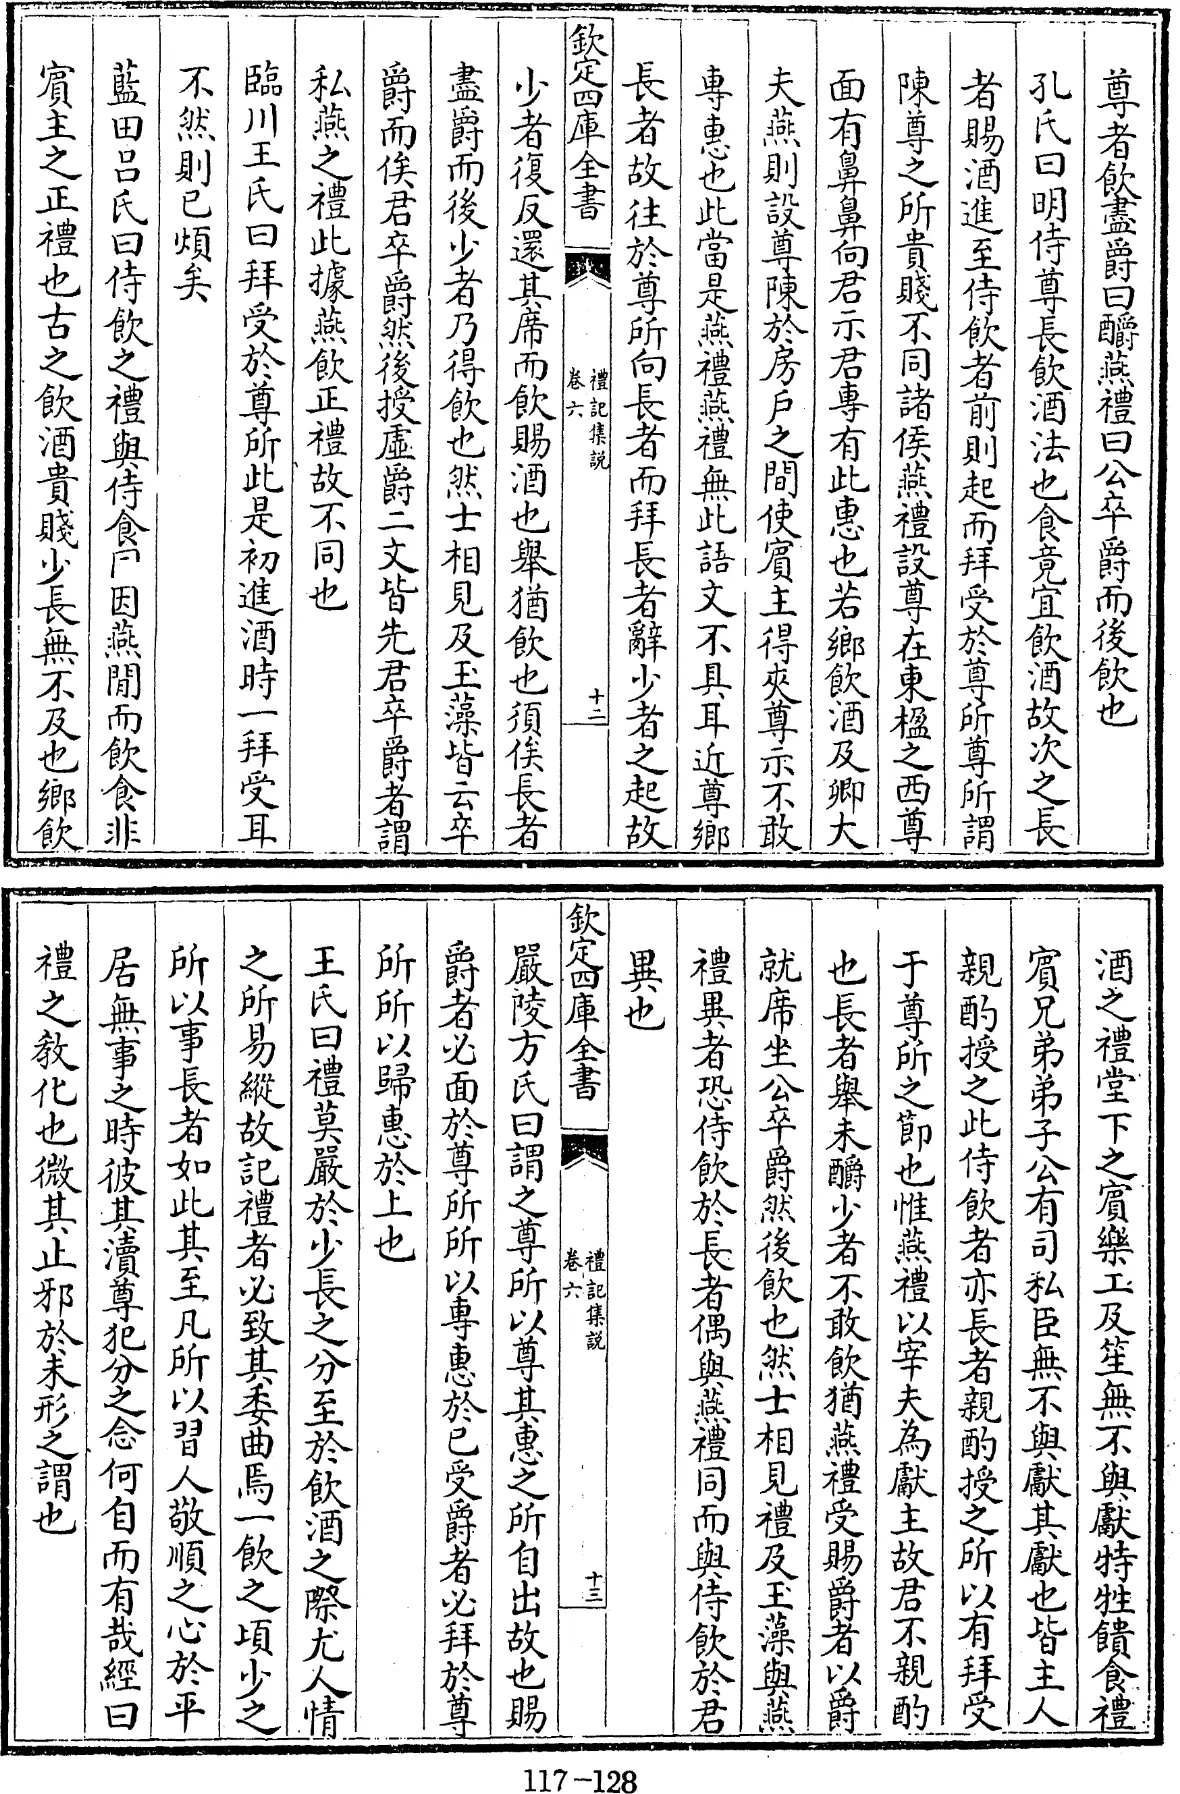 尊者飲盡爵曰釂燕禮曰公卒爵而後飲也
孔氏曰明侍尊長飲酒法也食竟宜飲酒故次之長
者賜酒進至侍飲者前則起而拜受於尊所尊所謂
陳尊之所貴賤不同諸侯燕禮設尊在東楹之西尊
面有鼻鼻向君示君專有此惠也若鄉飲酒及卿大
夫燕則設尊陳於房戶之間使賓主得夾尊示不敢
專惠也此當是燕禮燕禮無此語文不具耳近尊鄉
長者故往於尊所向長者而拜長者辭少者之起故
欽定四庫全書
禮記集説
卷六
十二
少者復反還其席而飲賜酒也舉猶飲也須俟長者
盡爵而後少者乃得飲也然士相見及玉藻皆云卒
爵而俟君卒爵然後授虛爵二文皆先君卒爵者謂
私燕之禮此據燕飲正禮故不同也
臨川王氏曰拜受於尊所此是初進酒時一拜受耳
不然則已煩矣
藍田呂氏曰侍飲之禮與侍食同因燕閒而飲食非
賓主之正禮也古之飲酒貴賤少長無不及也鄉飲
酒之禮堂下之賓樂工及笙無不與獻特牲饋食禮
賓兄弟弟子公有司私臣無不與獻其獻也皆主人
親酌授之此侍飲者亦長者親酌授之所以有拜受
于尊所之節也惟燕禮以宰夫為獻主故君不親酌
也長者舉未釂少者不敢飲猶燕禮受賜爵者以爵
就席坐公卒爵然後飲也然士相見禮及玉藻與燕
禮異者恐侍飲於長者偶與燕禮同而與侍飲於君
異也
欽定四庫全書
禮記集説
卷六
十三
嚴陵方氏曰謂之尊所以尊其惠之所自出故也賜
爵者必面於尊所所以專惠於已受爵者必拜於尊
所所以歸惠於上也
王氏曰禮莫嚴於少長之分至於飲酒之際尤人情
之所易縱故記禮者必致其委曲焉一飲之頃少之
所以事長者如此其至凡所以習人敬順之心於平
居無事之時彼其瀆尊犯分之念何自而有哉經曰
禮之敎化也微其止邪於未形之謂也
117-128